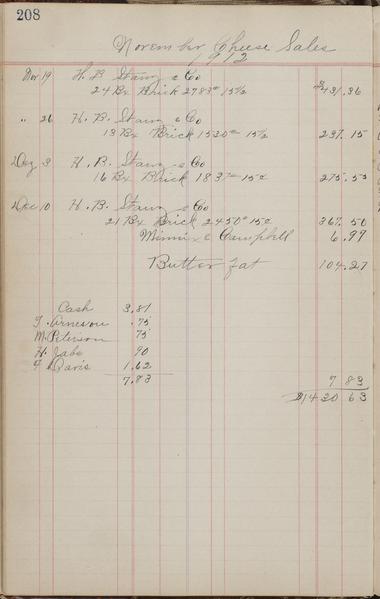 208
November Cheese Sales
1912
Nov 19 H. B. Stanz & Co
24 Bx Brick 2783# 15½ $431.36
" 26 H. B. Stanz & Co
13 Bx Brick 1530# 15½ 237.15
Dez 3 H. B. Stanz & Co
16 Bx Brick 1837# 15¢ 275.55
Dec 10 H. B. Stanz & Co
21 Bx Brick 2450# 15¢ 367.50
Campbell 6.97
Butter fat 104.27
Cash 3.81
T. Arneson .75
M. Peterson 75
H. Jabs 90
F Davis 1.62
7.83 7 83
$1430 63